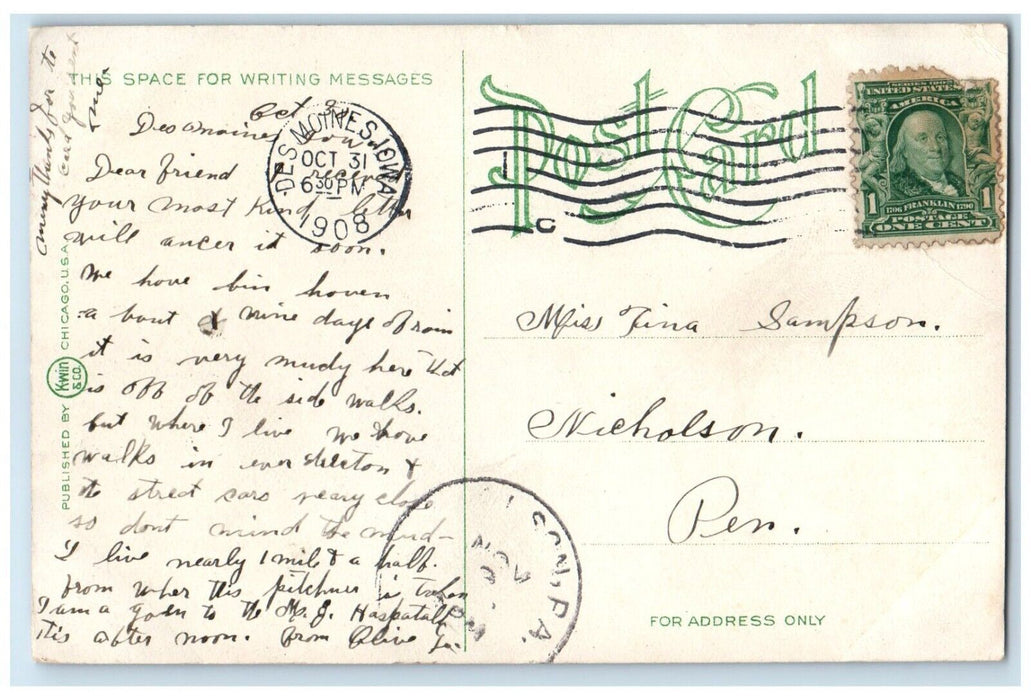 THIS SPACE FOR WRITING MESSAGES
many thanks for the
card you sent
me.
Oct
Des Moines
Iowa
Dear friend recieve
your most kind letter
will ancer it soon.
We have bin haven
a bout & nine days of rain
it is very mudy here that
is off of the side walks.
but where I live we have
walks in ever directon &
the street cars neary close
so dont mind the mud-
I live nearly 1 mile & a half.
from wher this pitchner is taken
I am a goen to the Haspatall
this after noon. from Olive
PUBLISHED BY Kwin & CO. CHICAGO, U.S.A.
DES MOINES, IOWA
OCT 31
6 30 PM
1908
Post Card
1 C
UNITED STATES
AMERICA
1706 FRANKLIN 1790
1 1
POSTAGE
ONE CENT
Miss Tina Sampson.
Nicholson.
Pen.
SON, PA.
NOV
FOR ADDRESS ONLY